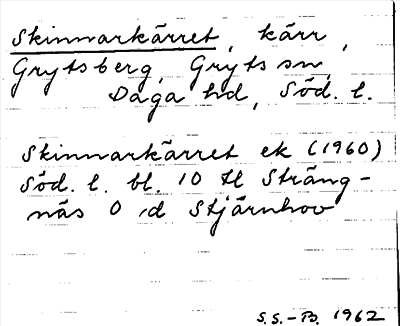 Skinnarkärret, kärr,
Grytsberg, Gryts sn,
Daga hd, Söd. l.
Skinnarkärret ek (1960)
Söd. l. bl. 10 tl Sträng-
näs O id Stjärnhov
S.S.-B. 1962